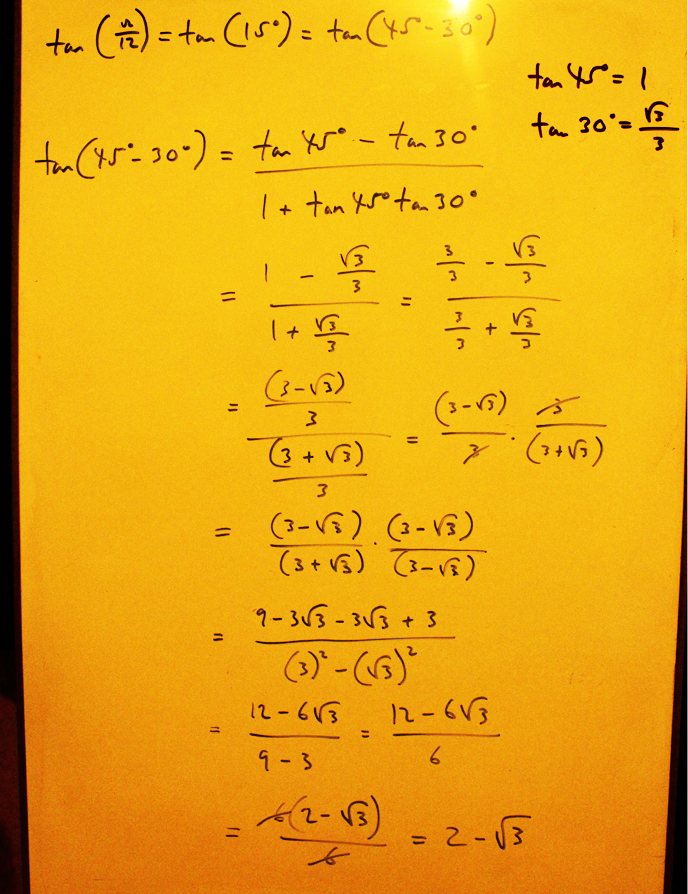 tan (π/12) = tan (15°) = tan (45° - 30°)
tan 45° = 1
tan 30° = √3/3
tan (45° - 30°) = (tan 45° - tan 30°)/(1 + tan 45° tan 30°)
= (1 - √3/3)/(1 + √3/3) = (3/3 - √3/3)/(3/3 + √3/3)
= ((3-√3)/3)/((3 + √3)/3) = (3-√3)/3 · 3/(3+√3)
= (3-√3)/(3+√3) · (3-√3)/(3-√3)
= (9 - 3√3 - 3√3 + 3)/((3)² - (√3)²)
= (12 - 6√3)/(9 - 3) = (12 - 6√3)/6
= 6(2 - √3)/6 = 2 - √3